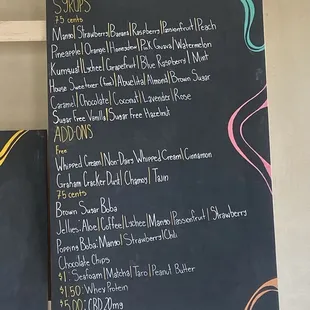 SYRUPS
75 cents
Mango|Strawberry|Banana|Raspberry|Passionfruit|Peach
Pineapple|Orange|Honeydew|Pink Guava|Watermelon
Kumquat|Lychee|Grapefruit|Blue Raspberry|Mint
House Sweetener (free)|Abuelita|Almond|Brown Sugar
Caramel|Chocolate|Coconut|Lavender|Rose
Sugar Free Vanilla|Sugar Free Hazelnut
ADD-ONS
Free
Whipped Cream|Non-Dairy Whipped Cream|Cinnamon
Graham Cracker Dust|Chamoy|Tajin
75 cents
Brown Sugar Boba
Jellies: Aloe|Coffee|Lychee|Mango|Passionfruit|Strawberry
Popping Boba: Mango|Strawberry|Chili
Chocolate Chips
$1: Seafoam|Matcha|Taro|Peanut Butter
$1.50: Whey Protein
$5.00: CBD 20mg